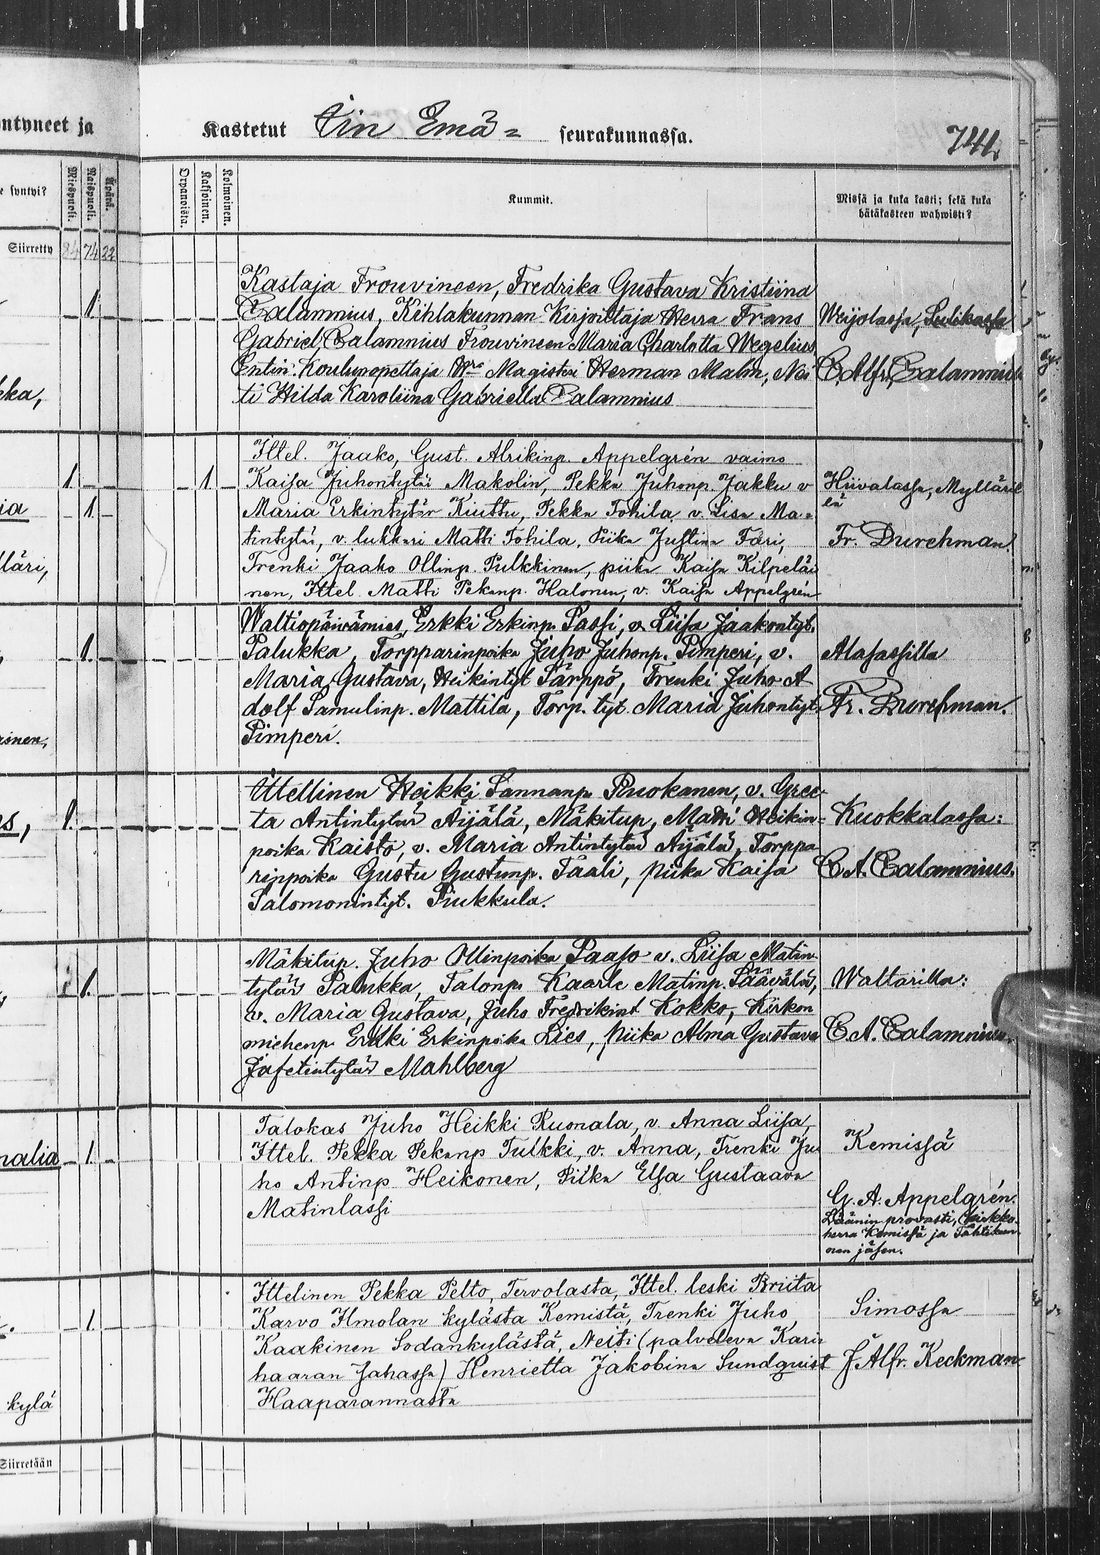 ntyneet ja
Kastetut Iin Emä= seurakunnassa.
741.
e syntyi?
Miespuoli.
Naispuoli.
Orpanoista.
Kaksoinen.
Kolmoinen.
Kummit.
Missä ja kuka kasti; sekä kuka
hätäkasteen wahwisti?
Siirretty 84 74 22
Kastaja Frouvineen, Fredrika Gustava Kristiina
Calamnius, Kihlakunnan Kirjoittaja Herra Frans
Gabriel Calamnius Frouvineen Maria Charlotta Wegelius,
Entin. Koulunopettaja Magister Herman Malm, Nei
ti Hilda Karoliina Gabriella Calamnius
1
Weijolassa,
C. Alfr. Calamnius
kka,
Ittel. Jaako, Gust. Alrikinp. Appelgrén vaimo
Kaisa Juhontytär Makolin, Pekka Juhonp. Jakku v
Maria Erkintytär Kiuttu, Pekka Tohila v. Lisa Ma=
tintytär, v. lukkari Matti Tohila, Piika Justina Färi,
Trenki Jaako Ollinp. Pulkkinen, piika Kaisa Kilpeläi
nen, Ittel. Matti Pekanp. Halonen, v. Kaisa Appelgrén
1 1
ia 1
Hiivalassa, Mylläril
lä
Fr. Durchman.
läri,
Waltiopäivämies, Erkki Erkinp. Passi, v. Liisa Jaakontyt.
Palukka, Torpparinpoika Juho Juhonp. Pimperi, v.
Maria Gustava, Heikintyt Särppö, Trenki Juho A
dolf Samulinp. Mattila, Torp. tyt. Maria Juhontyt.
Pimperi.
1
Alasassilla
Fr. Durchman.
inen,
Ittellinen Heikki Sannanp. Ruokanen, v. Gree
ta Antintytär Äijälä, Mäkitup, Matti Heikin=
poika Kaisto, v. Maria Antintytär Äijälä, Torppa
rinpoika Gustu Gustunp. Taali, piika Kaisa
Salomonintyt. Piukkula.
es, 1.
Kuokkalassa:
C. A. Calamnius.
Mäkitup. Juho Ollinpoika Paaso v. Liisa Matin
tytär Palukka, Talonp. Kaarle Matinp. Säävälä,
v. Maria Gustava, Juho Fredrikint Kokko, Kirkon
miehenp. Erkki Erkinpoika Lies, Piika Alma Gustava
Jafetintytär Mahlberg
1.
Waltarilla:
C. A. Calamnius.
Talokas Juho Heikki Ruonala, v. Anna Liisa,
Ittel. Pekka Pekanp Tulkki, v. Anna, Trenki Ju
ho Antinp Heikonen, Piika Elsa Gustaava
Matinlassi
nalia 1
Kemissä
G. A. Appelgrén.
Läänin provasti, Kirkko
herra Kemissä ja Tähtikun
nan jäsen.
Ittelinen Pekka Pelto, Tervolasta, Ittel. leski Briita
Karvo Ilmolan kylästä Kemistä, Trenki Juho
Kaakinen Sodankylästä, Neiti (palveleva Kari
haaran Sahassa) Henrietta Jakobina Sundquist
Haaparannasta
1.
Simossa
J. Alfr. Keckman
kylä
Siirretään